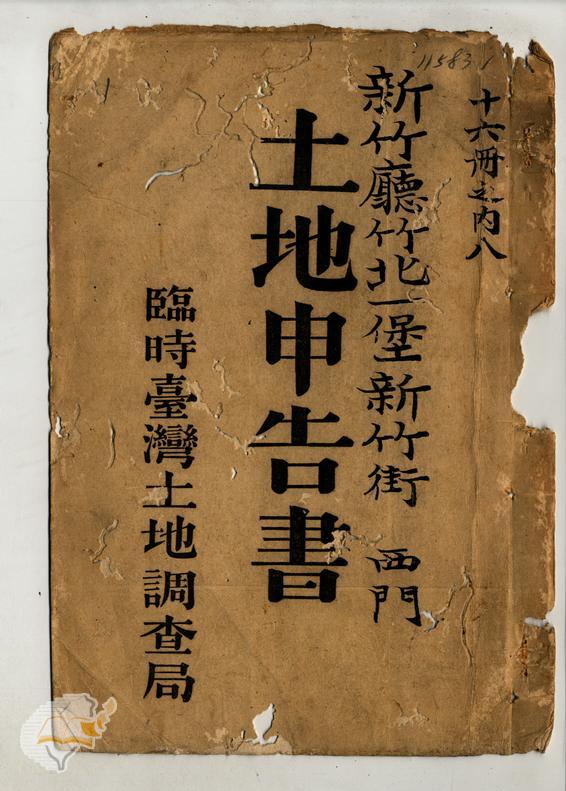 11583.1
十六冊之内八
新竹廳竹北一堡新竹街 西門
土地申告書
臨時臺灣土地調査局